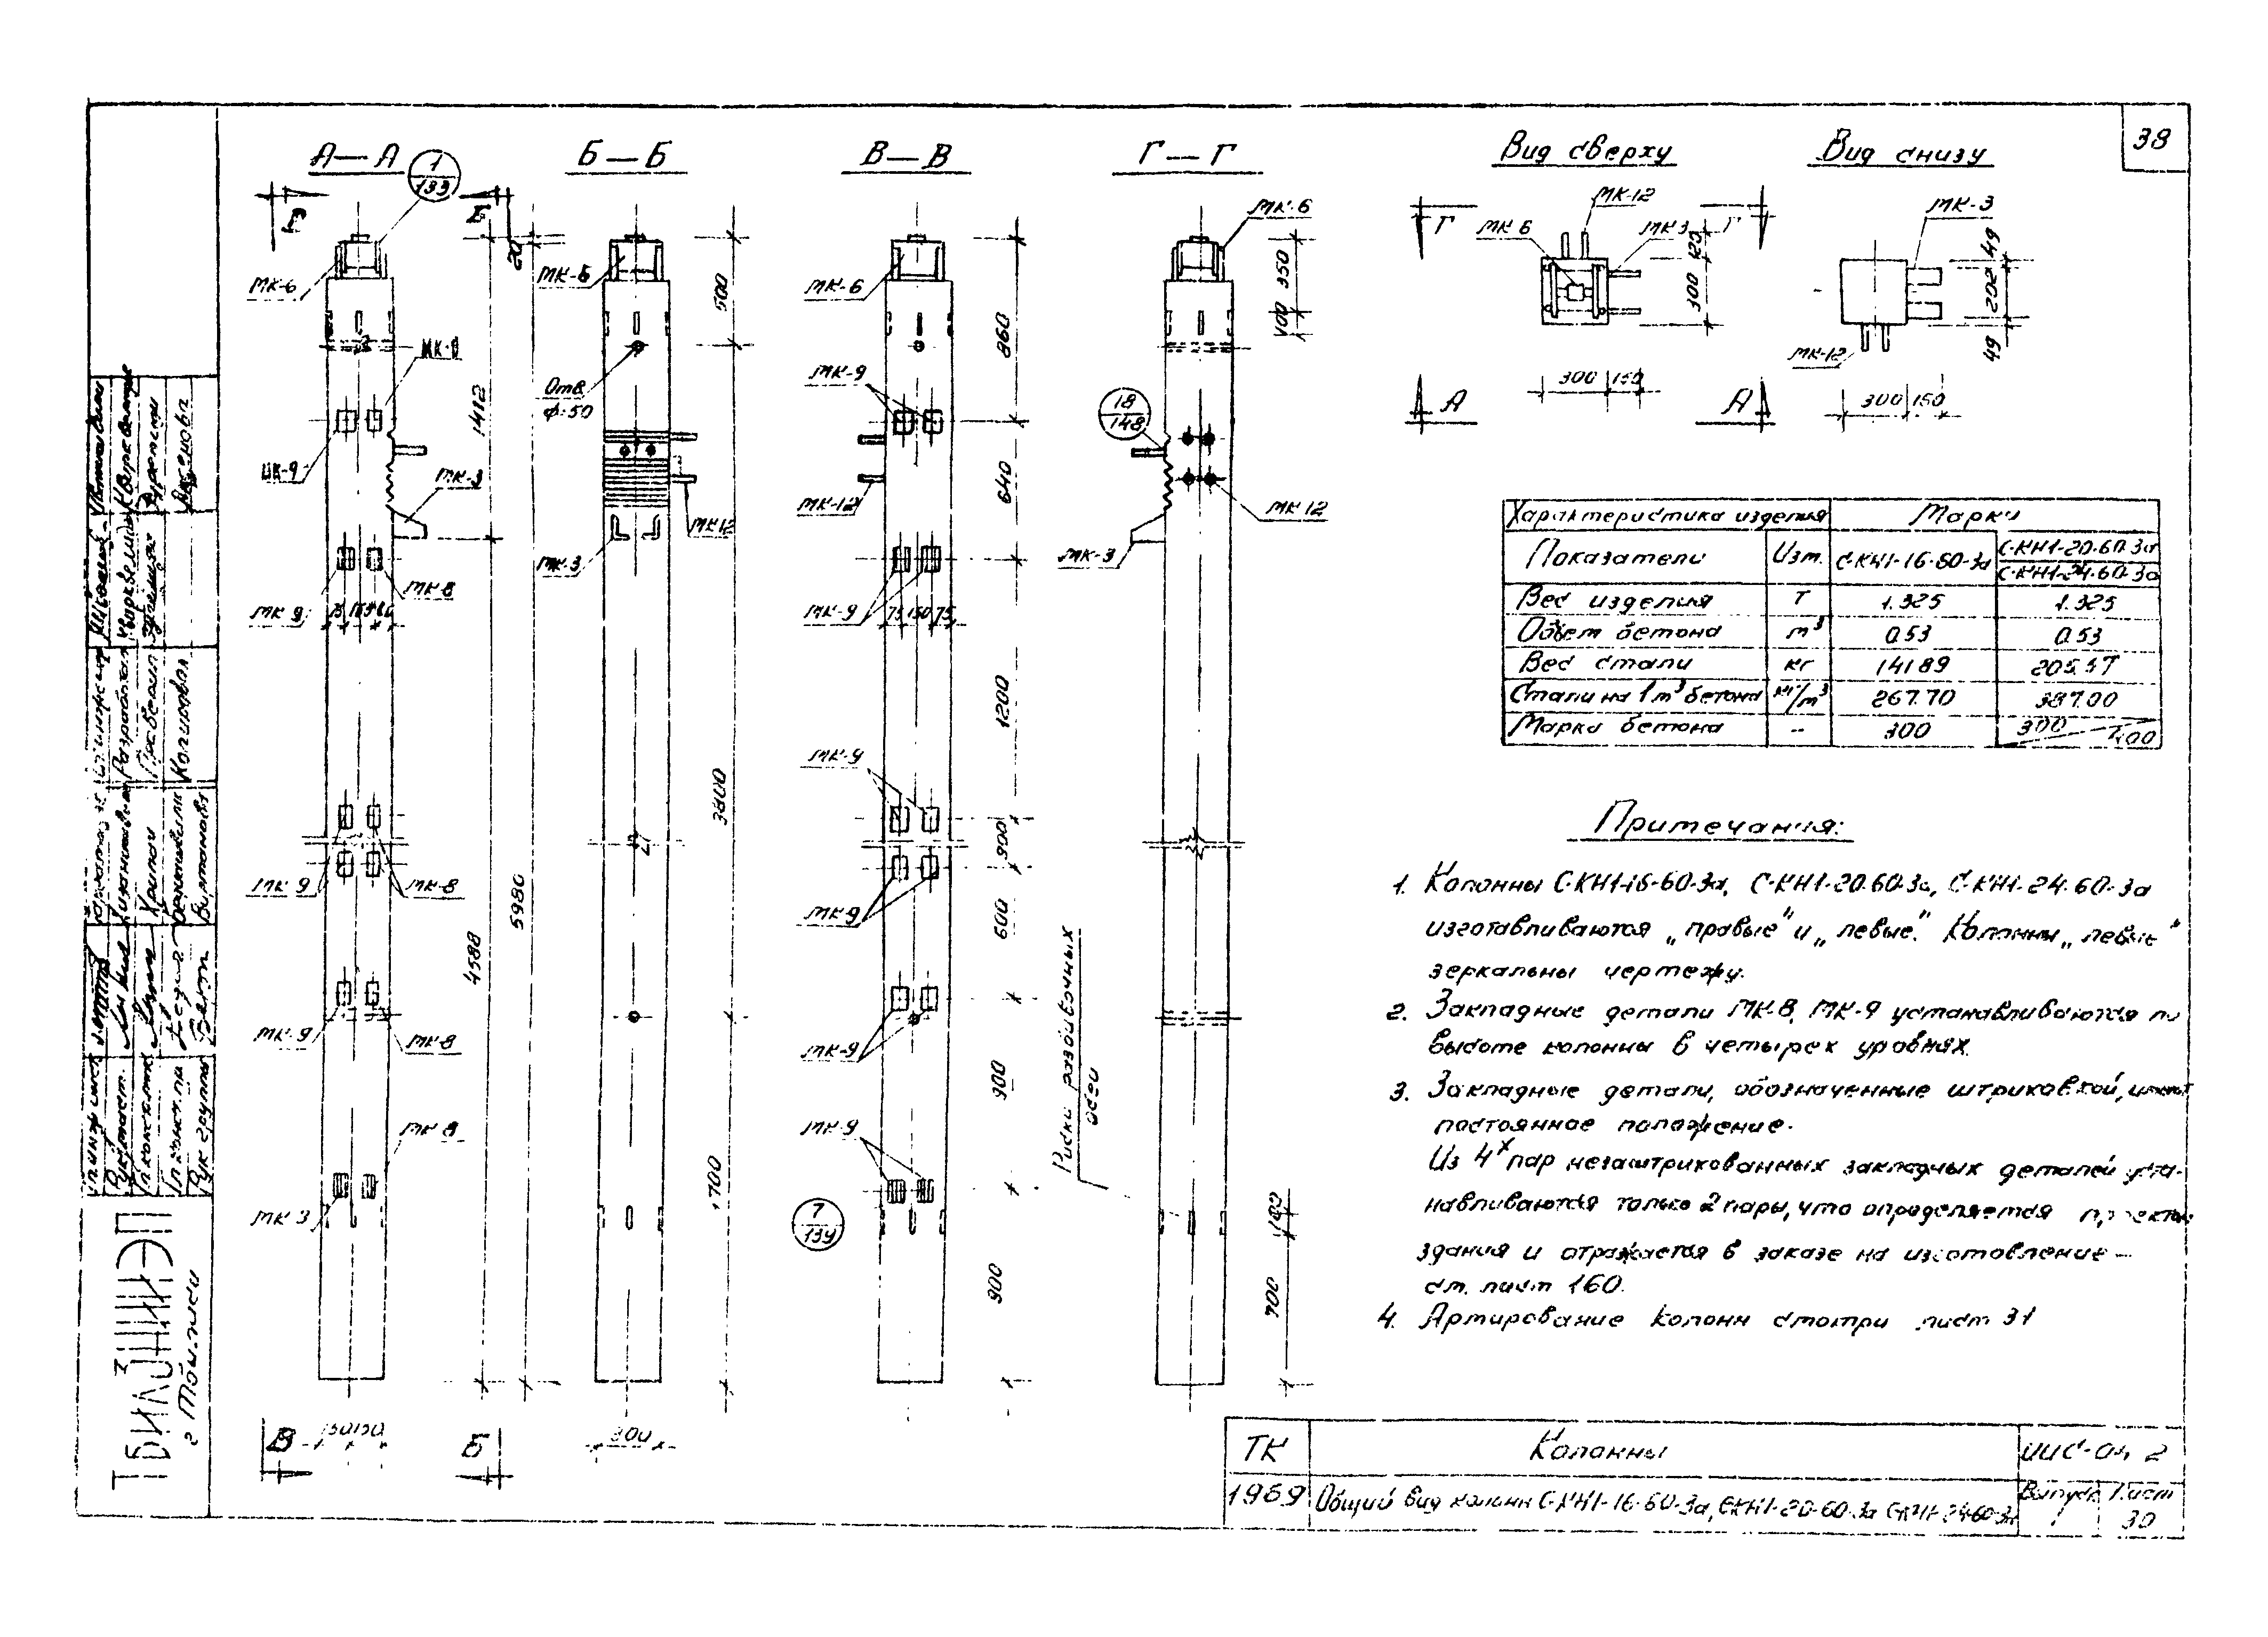 38
А—А
1
133
Б—Б
В—В
Г—Г
Вид сверху
Вид снизу
Г
Б
20
МК-6
МК-8
МК-9
МК-3
1412
МК-9
МК-8
75
МК-9
МК-8
МК-9
МК-8
МК-8
МК 3
4588
5980
В
150150
Б
МК-6
500
Отв.
ф.50
МК12
МК-3
3800
1700
300
МК-6
МК-9
МК-12
МК-9
75 150 75
МК-9
МК-9
МК-9
МК-9
7
139
860
640
1200
900
600
900
900
Риски разбивочных
осей
МК-6
350
100
18
148
МК 12
МК-3
100
700
МК-12
МК 6
МК 3
Г
Г
120
300
300 150
А
А
МК-3
49
202
49
МК-12
300 150
Характеристика изделия Марки
Показатели Изм. С-КН1-16-60-3а С-КН1-20-60-3а
С-КН1-24-60-3а
Вес изделия т 1.325 1.325
Объем бетона м³ 0.53 0.53
Вес стали кг 141.89 205.57
Стали на 1 м³ бетона кг/м³ 267.70 387.00
Марка бетона -- 300 300 400
Примечания:
1. Колонны С-КН1-16-60-3а, С-КН1-20.60-3а, С-КН1-24.60-3а
изготавливаются „правые" и „левые". Колонны „левые"
зеркальны чертежу.
2. Закладные детали МК-8, МК-9 устанавливаются по
высоте колонны в четырех уровнях.
3. Закладные детали, обозначенные штриховкой, имеют
постоянное положение.
Из 4х пар незаштрикованных закладных деталей уста-
навливаются только 2 пары, что определяется проектом
здания и отражается в заказе на изготовление –
см. лист 160.
4. Армирование колонн смотри лист 31
ТК Колонны ИИС-04 2
1969 Общий вид колонн С-КН1-16-60-3а, С-КН1-20-60-3а С-КН1-24-60-3а Выпуск 1 Лист 30
ТбилЗНИИЭП
г Тбилиси
Разработал
Проверил
Копировал
Рук группы